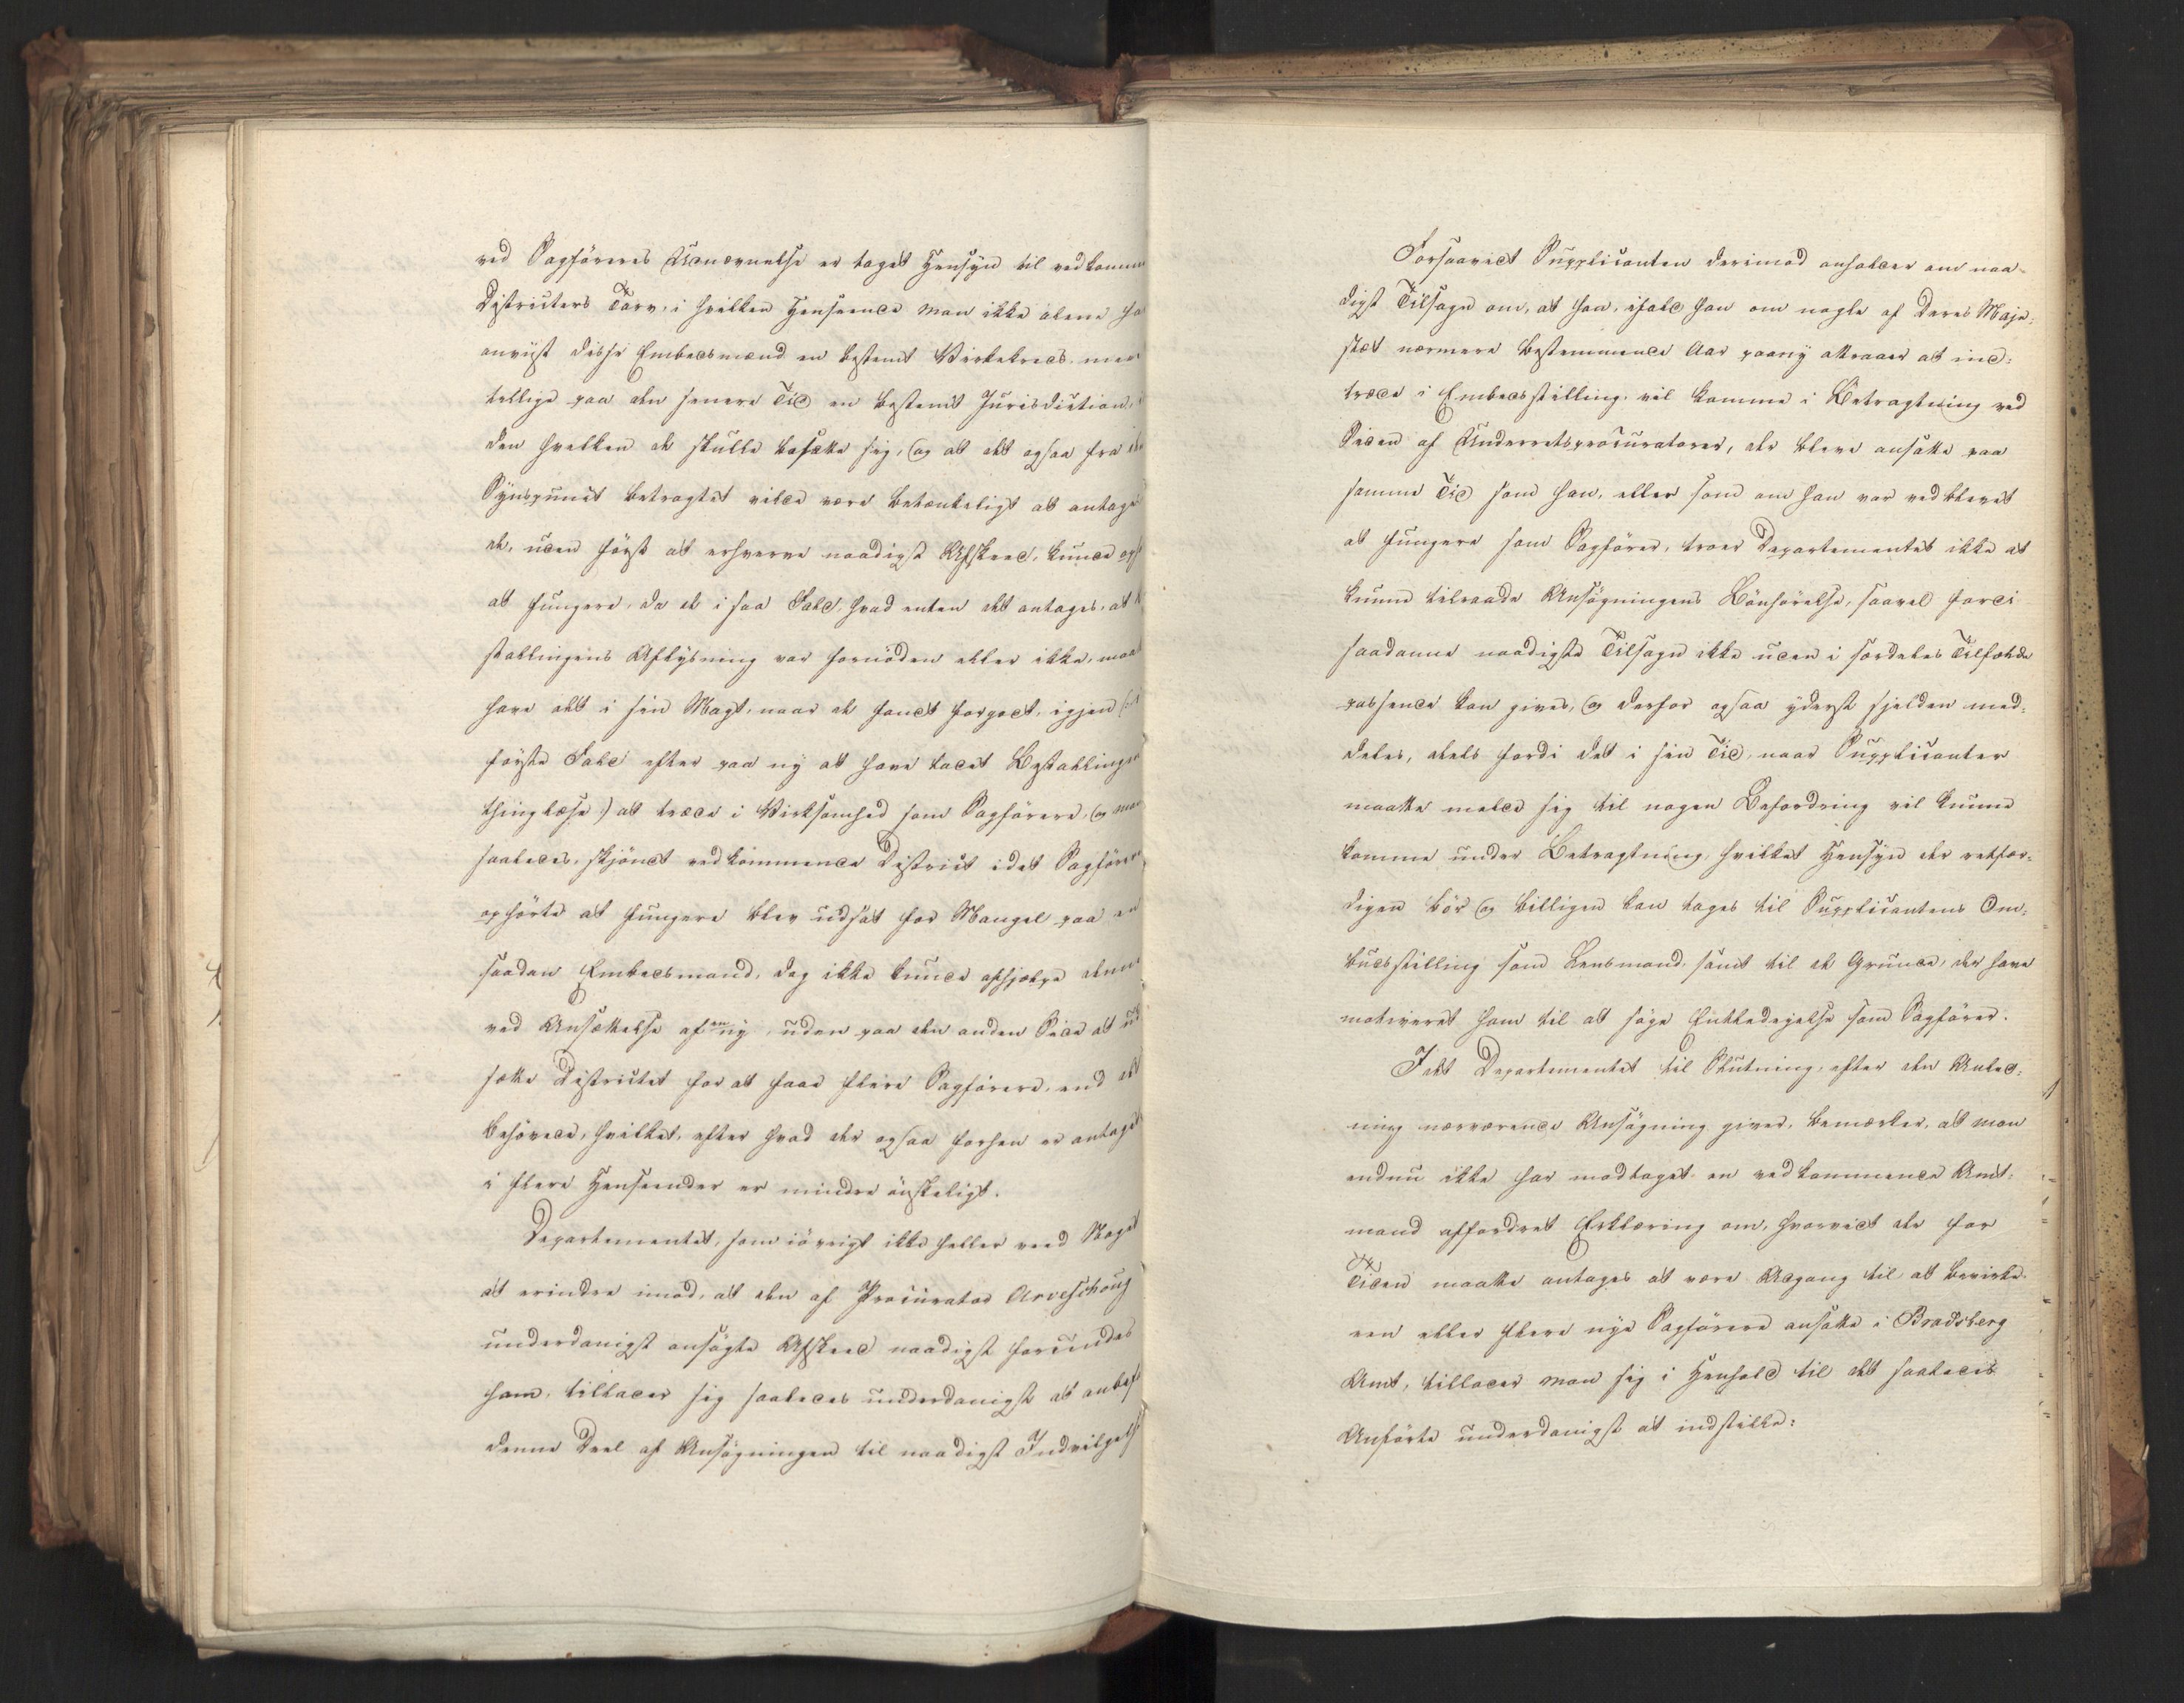 ved Sagføreres Udnævnelse er taget Hensyn til vedkomme
Districters Tarv, i hvilken Henseende man ikke alene ha
anviist disse Embedsmænd en bestemt Virkekreds men
tillige paa den senere Tid en bestemt Jurisdiction,
den hvilken de skulle besætte sig, og at det ogsaa fra de
Synspunct betragtet vilde være betænkeligt at antage
de, uden først at erhverve naadigst Afskeed, kunde oph
at fungere, da de i saa Fald, hvad enten det antages, at
stallingens Aflysning var fornöden eller ikke, maat
have det i sin Magt, naar de fandt forgodt, igjen
förste Fald efter paa ny at have ladet Bestallingen
thinglæse) at træde i Virksomhed som Sagförere, og man
saaledes, skjöndt vedkommende District idet Sagföreren
ophörte at fungere blev udsat for Mangel paa en
saadan Embedsmand, dog ikke kunde afhjælpe denne
ved Ansættelse af en ny, uden paa den anden Side at ud
sætte Districtet for at faae flere Sagförere, end det
behövede, hvilket, efter hvad der ogsaa forhen er antaget
i flere Henseender er mindre önskeligt.
Departementet, som iövrigt ikke heller veed Noget
at erindre imod, at den af Procurator Arveschoug
underdanigst ansögte Afskeed naadigst forundes
ham, tillader sig saaledes underdanigst at anbef
denne Deel af Ansögningen til naadigst Indvilgelse
Forsaavidt Supplicanten derimod anholder om naa-
digst Tilsagn om, at han, ifald han om nogle af Deres Maje-
stæt nærmere bestemmende Aar paany attraaer at ind-
træde i Embedsstilling, vil komme i Betragtning ved
Siden af Underretsprocuratorer, der bleve ansatte paa
samme Tid som han, eller som om han var vedblevet
at fungere som Sagförer, troer Departementet ikke at
kunne tilraade Ansögningens Bönhörelse, saavel fordi
saadanne naadigste Tilsagn ikke uden i særdeles Tilfælde
passende kan gives, og derfor ogsaa yderst sjelden med-
deles, deels fordi det i sin Tid, naar Supplicanten
maatte melde sig til nogen Befordring vil kunne
komme under Betragtning, hvilket Hensyn der retfær-
digen bör og billigen kan tages til Supplicantens Om-
budsstilling som Lensmand samt til de Grunde, der have
motiveret ham til at söge Entledigelse som Sagförer.
Idet Departementet til Slutning, efter den Anled-
ning nærværende Ansögning giver, bemærker, at man
endnu ikke har modtaget en vedkommende Amt-
mand affordret Erklæring om, hvorvidt der for
Tiden maatte antages at være Adgang til at bevirke
een eller flere nye Sagförere ansatte i Bradsberg
Amt, tillader man sig i Henhold til det saaledes
Anförte underdanigst at indstille: